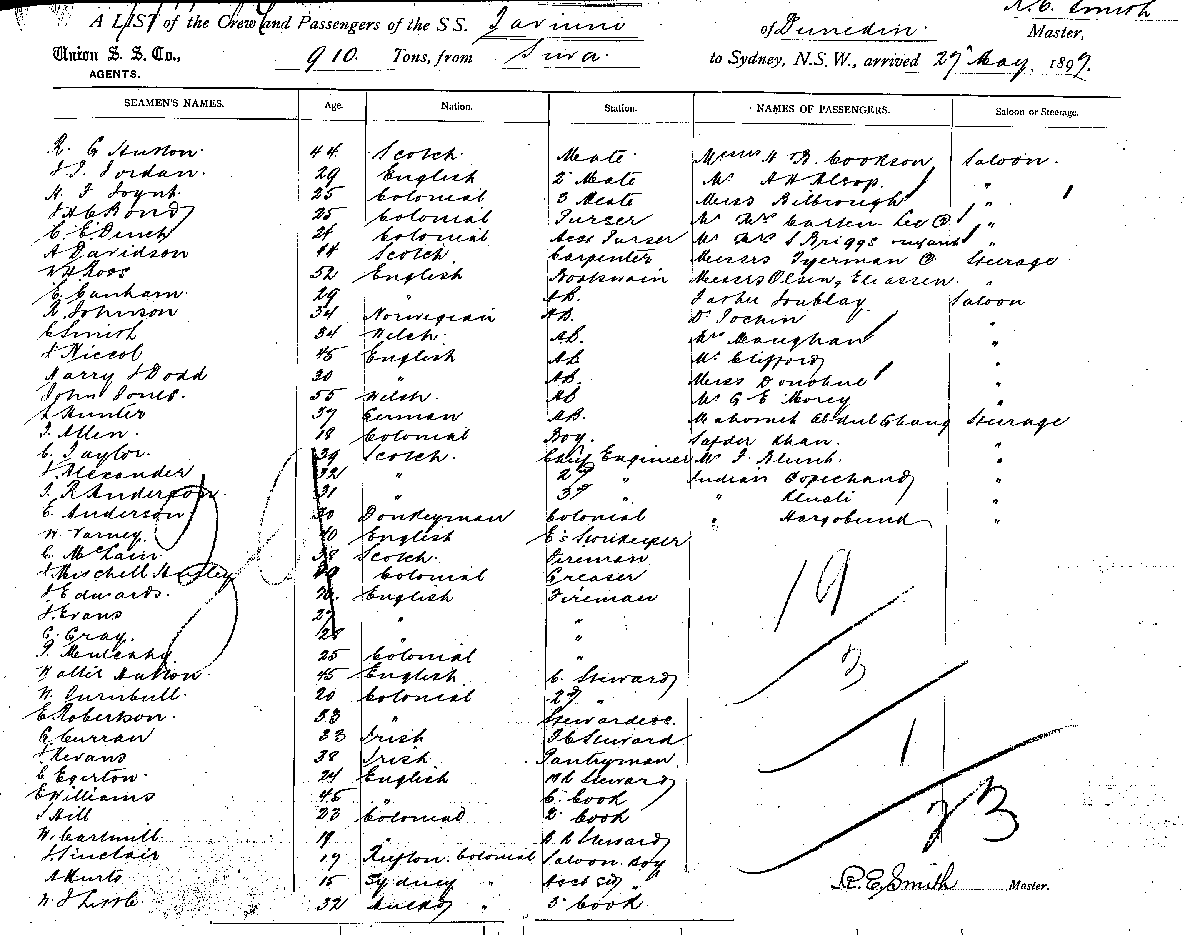 R. E. Smith
A LIST of the Crew and Passengers of the S.S. Taviuni of Dunedin. Master.
Union S. S. Co., 910. Tons, from Suva. to Sydney, N.S.W., arrived 27 May 1897.
AGENTS.
SEAMEN'S NAMES. Age. Nation. Station. NAMES OF PASSENGERS. Saloon or Steerage.
R. G Hutton. 44. Scotch. Mate. Messrs H B. Cookson Saloon.
J. Jordan. 29 English 2 Mate Mr A H Alsop. "
H. J Joynt. 25 Colonial 3 Mate Miss Bilbrough "
Bond 25 Colonial Purser Mr Mrs "
C. E Dench 21 Colonial Asst Purser Mr Mrs S Briggs "
A Davidson 44 Scotch Carpenter Messrs Tyerman Steerage
Roos 52 English Boatswain Messrs Olsen, Eliassen "
C. Canham. 29 " AB. Saloon
R. Johnson 34 Norwegian AB. Dr "
C Smith 34 Welch. AB. Maughan "
Niccol 45 English AB Mr Clifford "
Harry J Dodd 30 " AB. Miss Donohue "
John Jones. 55 Welch AB Mr G E Morey "
Hunter 37 German AB. Mahomet Abdul Steerage
J. Allen. 18 Colonial Boy. Khan. "
C. Taylor. 39 Scotch. Chief Engineer Mr J. Blunt. "
J Alexander 32 " 2d " Indian Copechand "
J. R Anderson. 31 " 3d " " "
E. Anderson 30 Donkeyman Colonial " Hargobund "
W. Varney. 40 English E's Storekeeper
C. McLain 38 Scotch. Fireman
Mitchell 40 Colonial Greaser
J Edwards. 26. English Fireman
J. Evans 27 " "
G. Gray. 28 "
P. Mulcahy 25 Colonial "
Walter Hutton. 45 English C. Steward
W. Turnbull. 20 Colonial 2d "
E Robertson. 33 " Stewardess.
G. Curran 23 Irish F. C Steward
Kevans 38 Irish Pantryman
C Egerton. 24 English Steward
E Williams 45 " C. Cook
Hill 23 Colonial 2 Cook
W. Cartmill 19 " Steward
J. Sinclair 17 Colonial Saloon Boy
A Kurts 15 Sydney " Asst "
W. J 32 " 3 Cook
19
3
1
23
R. E. Smith Master.